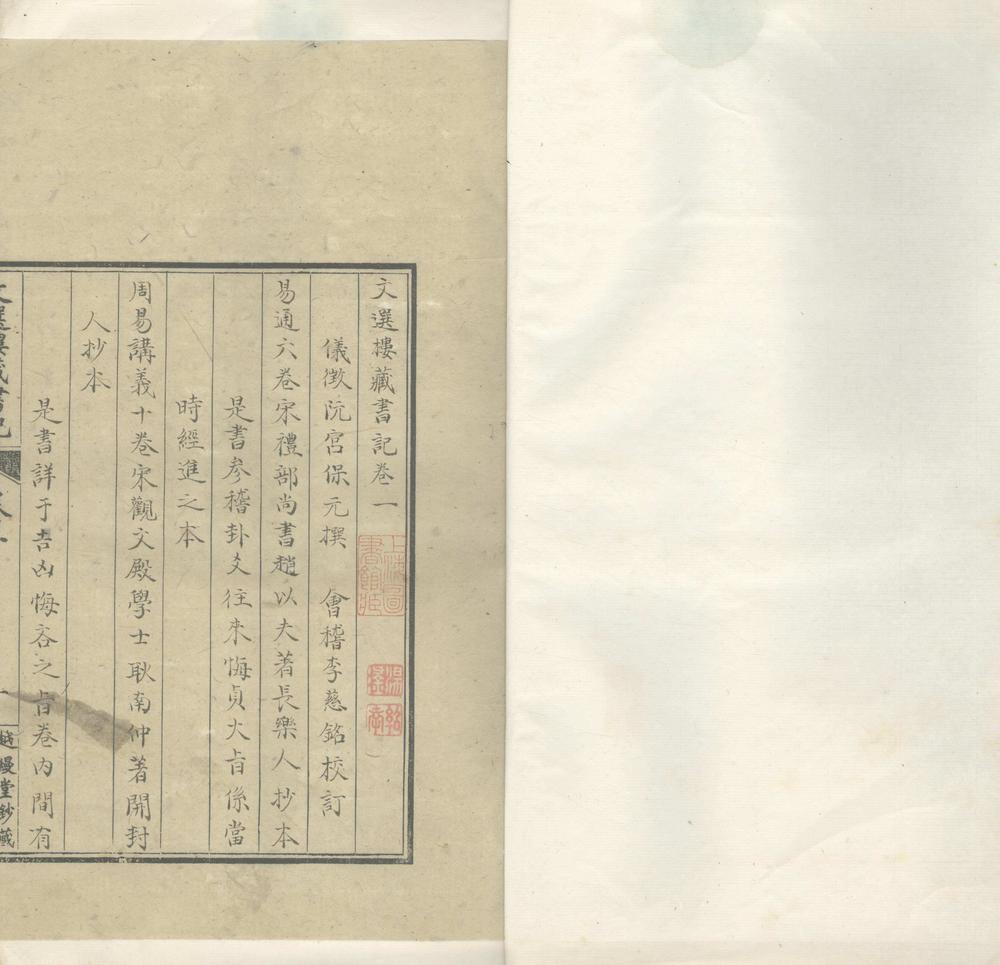 文選樓藏書記卷一
儀徵阮宮保元撰　會稽李慈銘校訂
易通六卷宋禮部尚書趙以夫著長樂人抄本
是書參稽卦爻往來悔貞大旨係當
時經進之本
周易講義十卷宋觀文殿學士耿南仲著開封
人抄本
是書詳于吉凶悔吝之旨卷內間有
文選樓藏書記
越縵堂鈔藏
上海圖書館藏